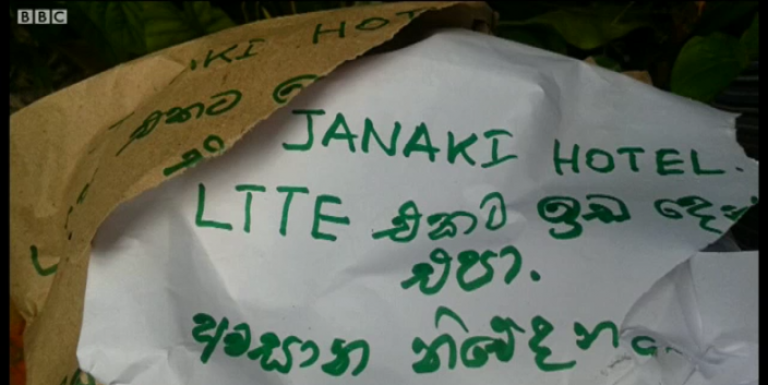 BBC
KI HOT
එකට ඉ
JANAKI HOTEL.
LTTE එකට ඉඩ දෙන
එපා.
අවසාන නිවේදනය